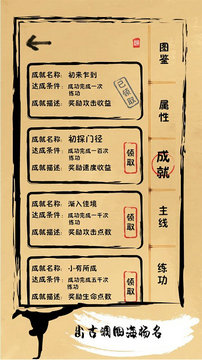 成就名称: 初来乍到
达成条件: 成功完成一次
练功
成就描述: 奖励攻击收益
已领取
成就名称: 初探门径
达成条件: 成功完成一百次
练功
成就描述: 奖励速度收益
领取
成就名称: 渐入佳境
达成条件: 成功完成一千次
练功
成就描述: 奖励攻击点数
领取
成就名称: 小有所成
达成条件: 成功完成五千次
练功
成就描述: 奖励生命点数
领取
图鉴
属性
成就
主线
练功